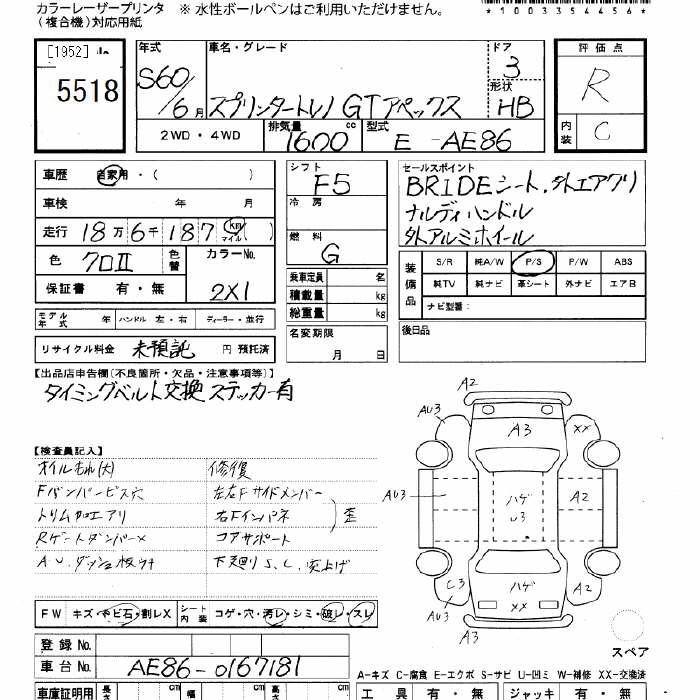 カラーレーザープリンタ ※ 水性ボールペンはご利用いただけません。
(複合機)対応用紙
*100354456*
[1952]
5518
年式 車名・グレード ドア 評価点
S60/6月 スプリンタートレノ GTアペックス 3 R
形状 HB
2WD・4WD 排気量 1600 cc 型式 E-AE86 内装 C
車歴 自家用・( )
車検 年 月
走行 18万6千187 km マイル ( )
色 クロII 色替 カラーNo.
保証書 有・無 2X1
モデル年式 年 ハンドル 左・右 ディーラー・並行
リサイクル料金 未預託 円 預託済
シフト F5
冷房
燃料 G
乗車定員 名
積載量 kg
総重量 kg
名変期限
月 日
セールスポイント
BRIDEシート.外エアクリ
ナルディハンドル
外アルミホイール
装備品 S/R 純A/W P/S P/W ABS
純TV 純ナビ 革シート 外ナビ エアB
ナビ型番:
後日品
【出品店申告欄(不良箇所・欠品・注意事項等)】
タイミングベルト交換 ステッカー有
【検査員記入】
オイルもれ(大) 修復
Fバンパービス穴 左右Fサイドメンバー
トリム加エアリ 右Fインパネ 歪
Rゲートダンパー× コアサポート
A.U.ダッシュ板ウキ 下廻りS.C.突上げ
FW キズ・ヤビ石・割レX シート内装 コゲ・穴・汚レ・シミ・破レ・スレ
A2
AU3
A3
XX
AU3
ハゲ
U3
A2
C3
AU3
A3
ハゲ
XX
A2
A2
スペア
登録 No.
車台 No. AE86-0167181
A-キズ C-腐食 E-エクボ S-サビ U-凹ミ W-補修 XX-交換済
車庫証明用 長 cm 幅 cm 高 cm
工具 有・無 ジャッキ 有・無